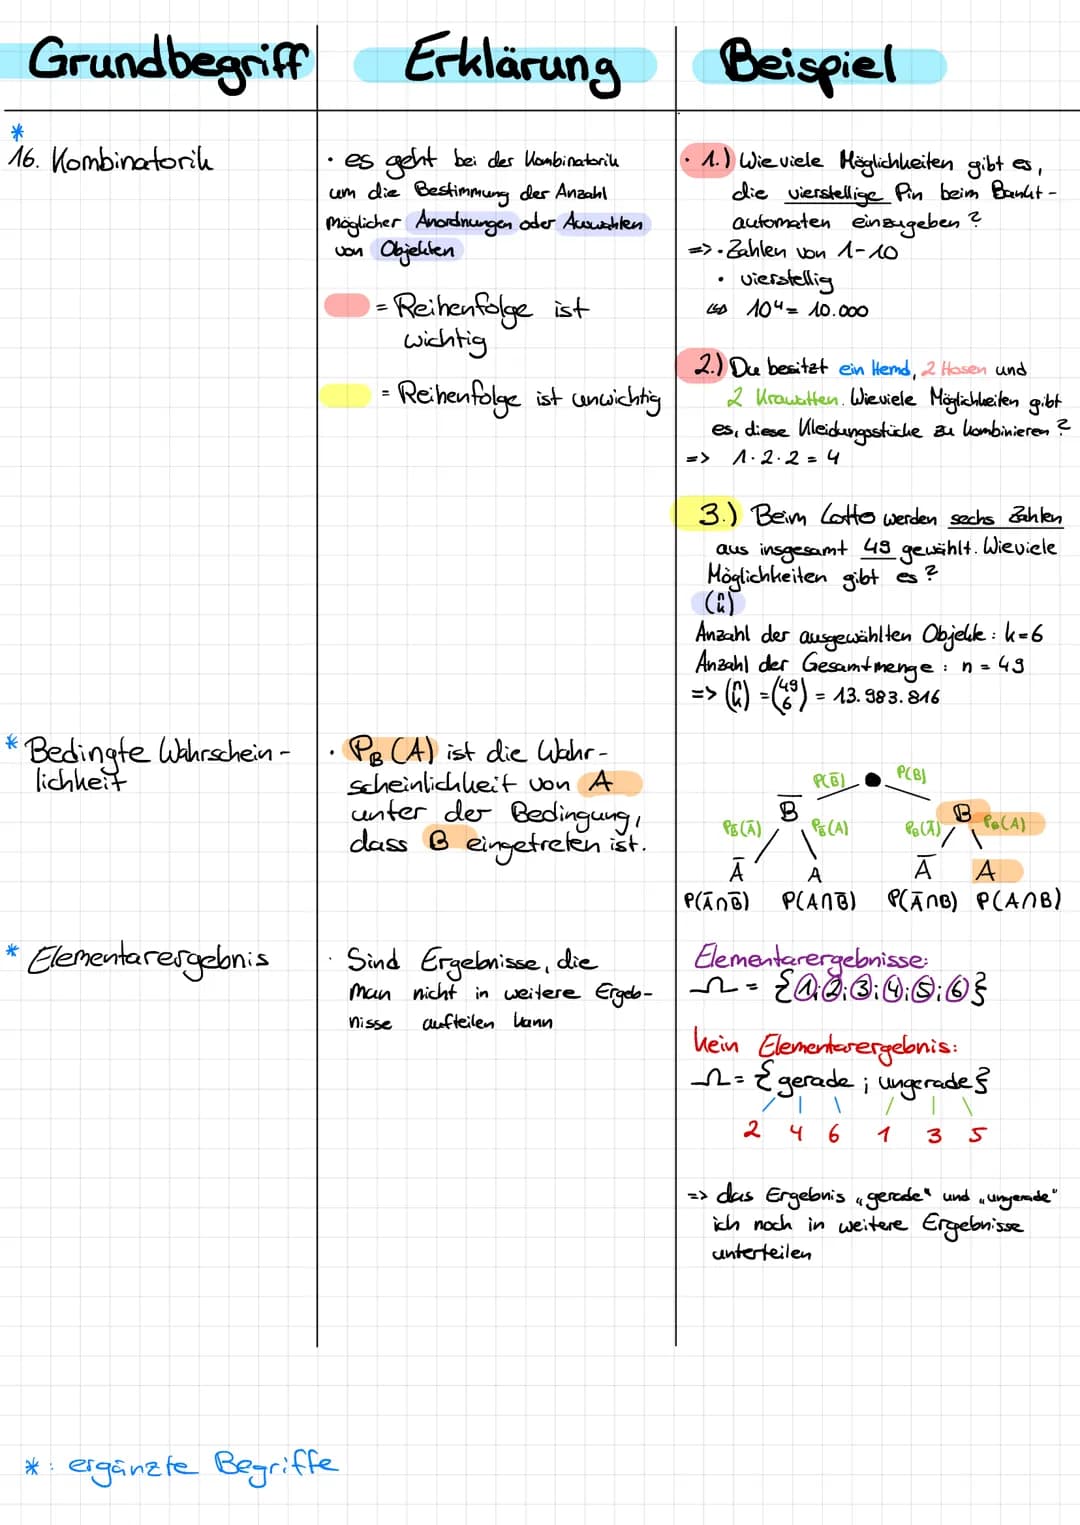 Grundbegriff
Erklärung
Beispiel
*
16. Kombinatorik
· es geht bei der Kombinatorik
um die Bestimmung der Anzahl
möglicher Anordnungen oder Auswahlen
von Objekten
= Reihenfolge ist
wichtig
= Reihenfolge ist unwichtig
· 1.) Wieviele Möglichkeiten gibt es,
die vierstellige Pin beim Bankt-
automaten einzugeben?
=> · Zahlen von 1-10
· vierstellig
↳ 10⁴ = 10.000
2.) Du besitzt ein Hemd, 2 Hosen und
2 Krawatten. Wieviele Möglichkeiten gibt
es, diese Kleidungsstücke zu kombinieren?
=> 1·2·2 = 4
3.) Beim Lotto werden sechs Zahlen
aus insgesamt 49 gewählt. Wieviele
Möglichkeiten gibt es?
(n k)
Anzahl der ausgewählten Objekte: k=6
Anzahl der Gesamtmenge: n = 49
=> (n k) = (49 6) = 13.983.816
* Bedingte Wahrschein-
lichkeit
· P_B(A) ist die Wahr-
scheinlichkeit von A
unter der Bedingung,
dass B eingetreten ist.
P(B̅) P(B)
B̅ B
P_B̅(A̅) P_B̅(A) P_B(A̅) P_B(A)
A̅ A A̅ A
P(A̅∩B̅) P(A∩B̅) P(A̅∩B) P(A∩B)
* Elementarergebnis
· Sind Ergebnisse, die
man nicht in weitere Ergeb-
nisse aufteilen kann
Elementarergebnisse:
Ω = {1;2;3;4;5;6}
kein Elementarergebnis:
Ω = {gerade ; ungerade}
2 4 6 1 3 5
=> das Ergebnis „gerade“ und „ungerade“
ich noch in weitere Ergebnisse
unterteilen
* : ergänzte Begriffe